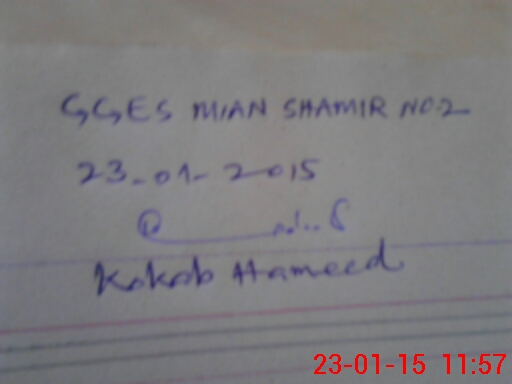 GGES MIAN SHAMIR NO.2
23-01-2015
Kokab Hameed
23-01-15 11:57